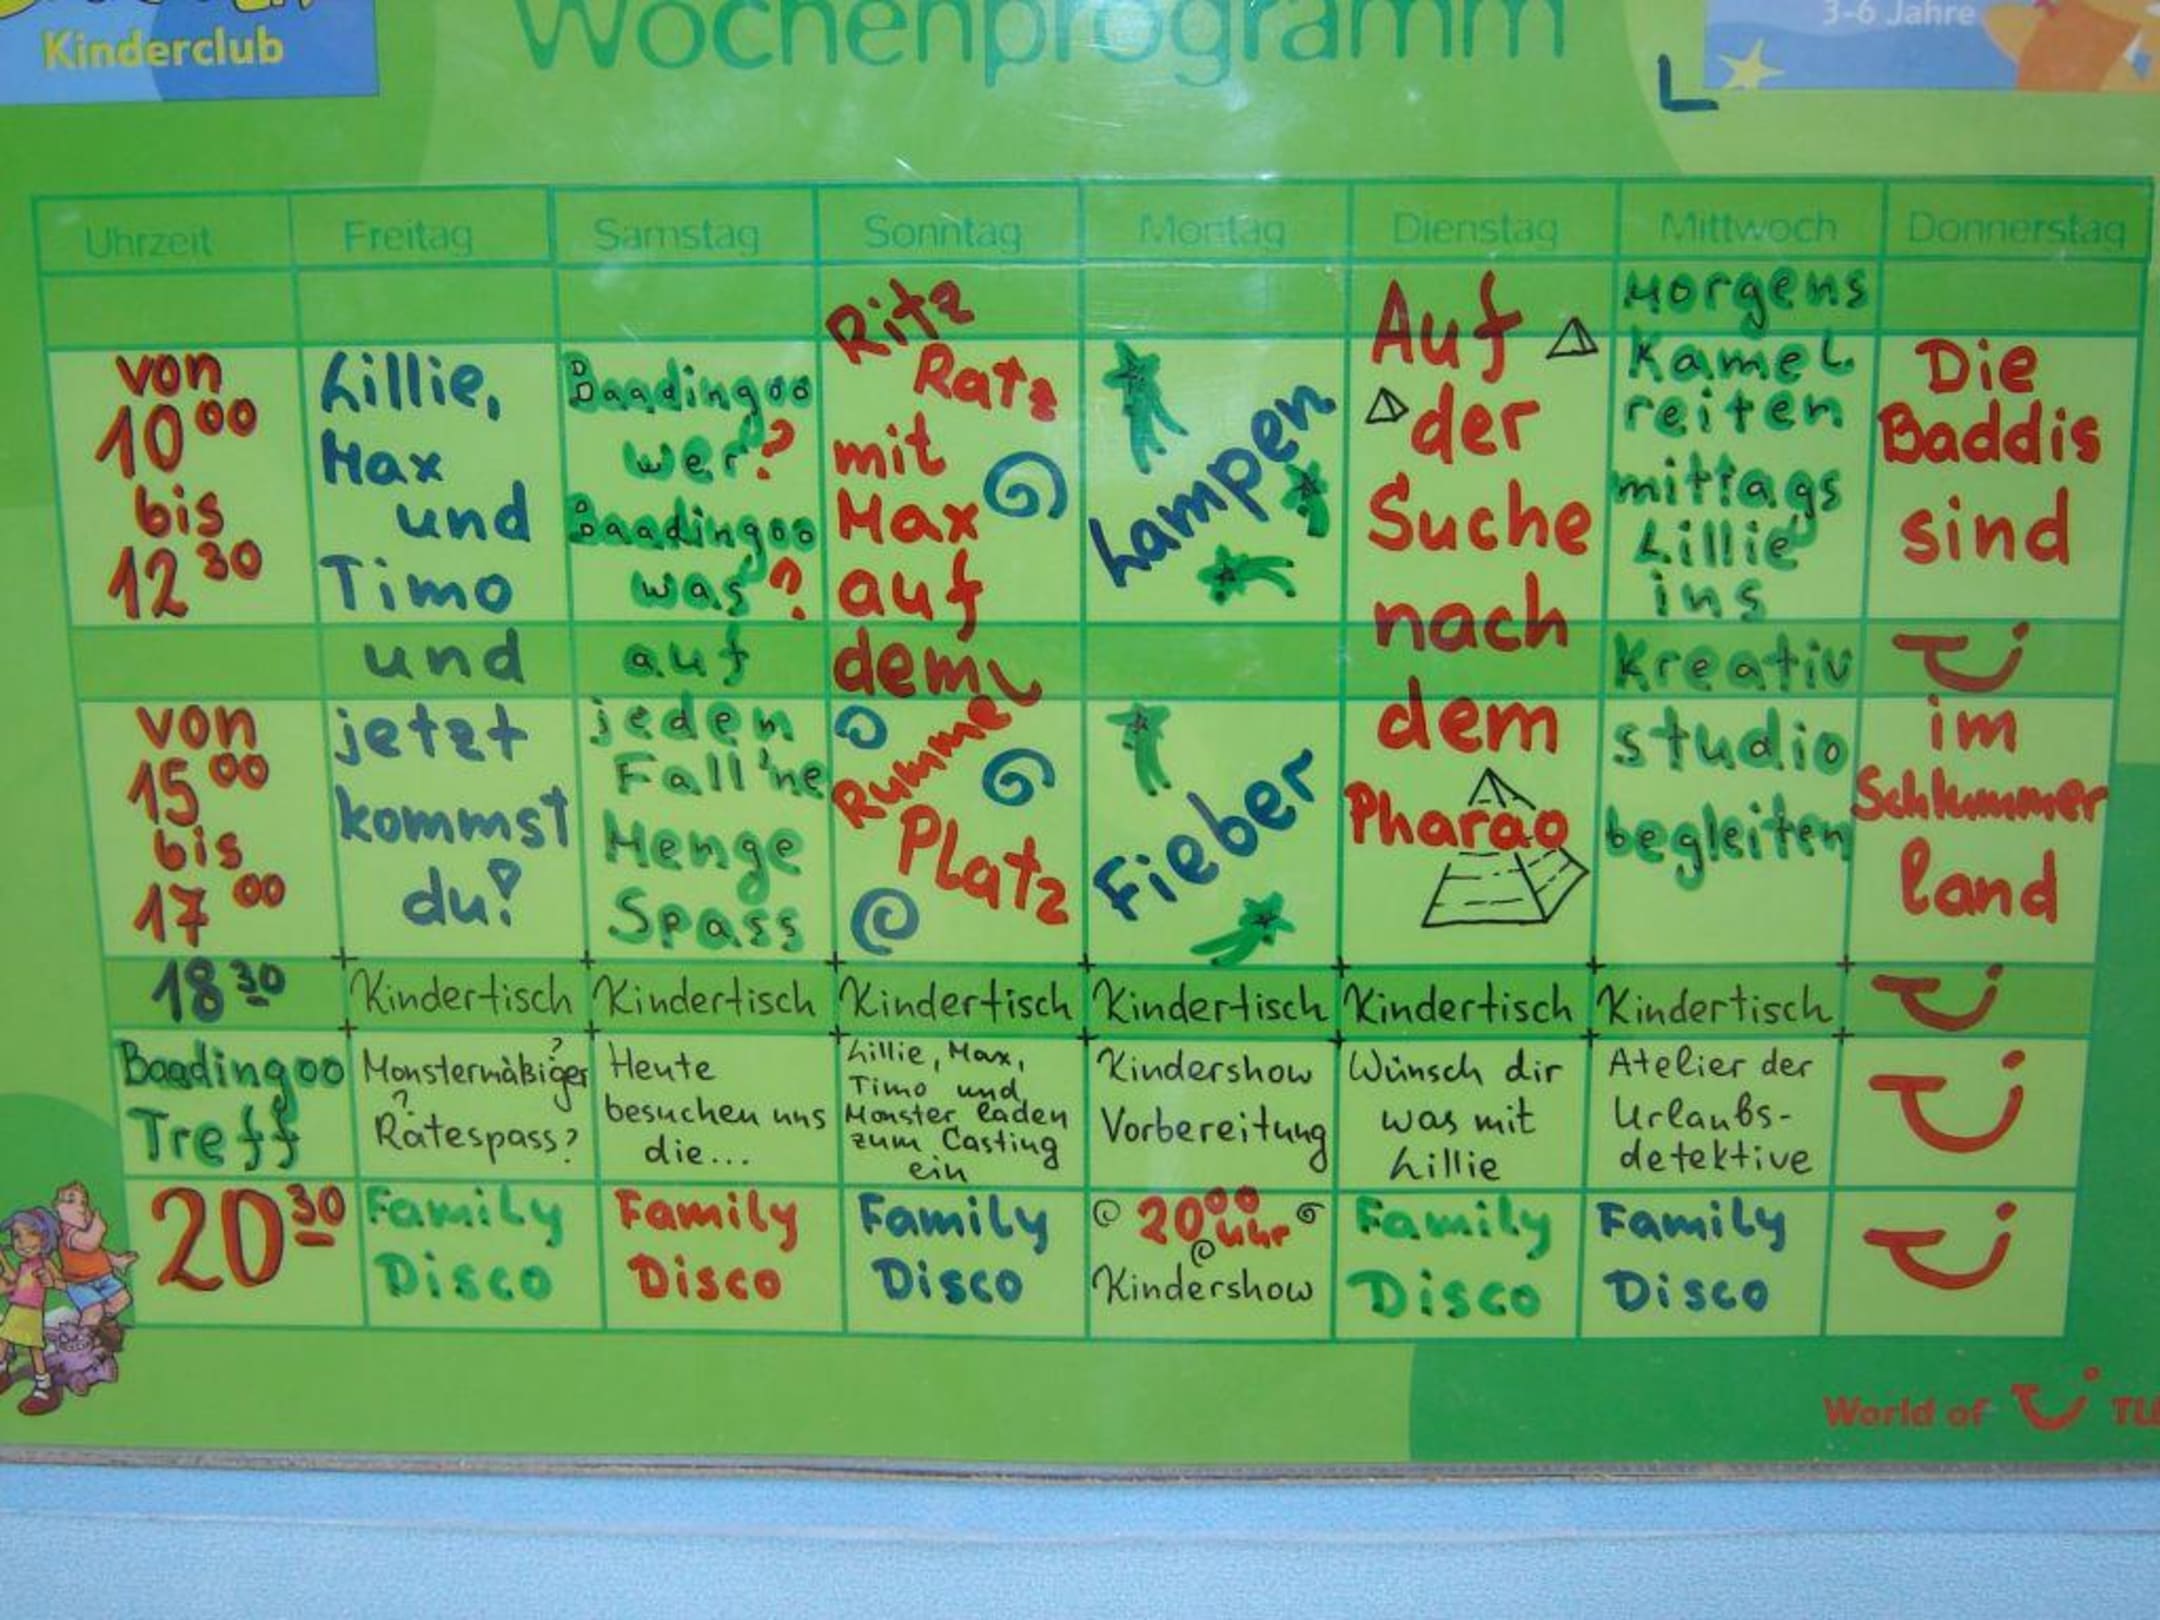 Kinderclub
Wochenprogramm
3-6 Jahre
L
Uhrzeit Freitag Samstag Sonntag Montag Dienstag Mittwoch Donnerstag
von
10 00
bis
12 30
von
15 00
bis
17 00
Lillie,
Max
und
Timo
und
jetzt
kommst
du!
Baadingoo
wer?
Baadingoo
was?
auf
jeden
Fall 'ne
Menge
Spass
Ritz
Ratz
mit
Max
auf
dem
Rummel
Platz
Lampen
Fieber
Auf
der
Suche
nach
dem
Pharao
Morgens
Kamel
reiten
mittags
Lillie
ins
Kreativ
studio
begleiten
Die
Baddis
sind
im
Schlummer
land
18 30 Kindertisch Kindertisch Kindertisch Kindertisch Kindertisch Kindertisch
Baadingoo
Treff
Monstermäßiger
?
?
Rätespass?
Heute
besuchen uns
die...
Lillie, Max,
Timo und
Monster laden
zum Casting
ein
Kindershow
Vorbereitung
Wünsch dir
was mit
Lillie
Atelier der
Urlaubs-
detektive
20 30
Family
Disco
Family
Disco
Family
Disco
20 00 Uhr
Kindershow
Family
Disco
Family
Disco
World of TUI